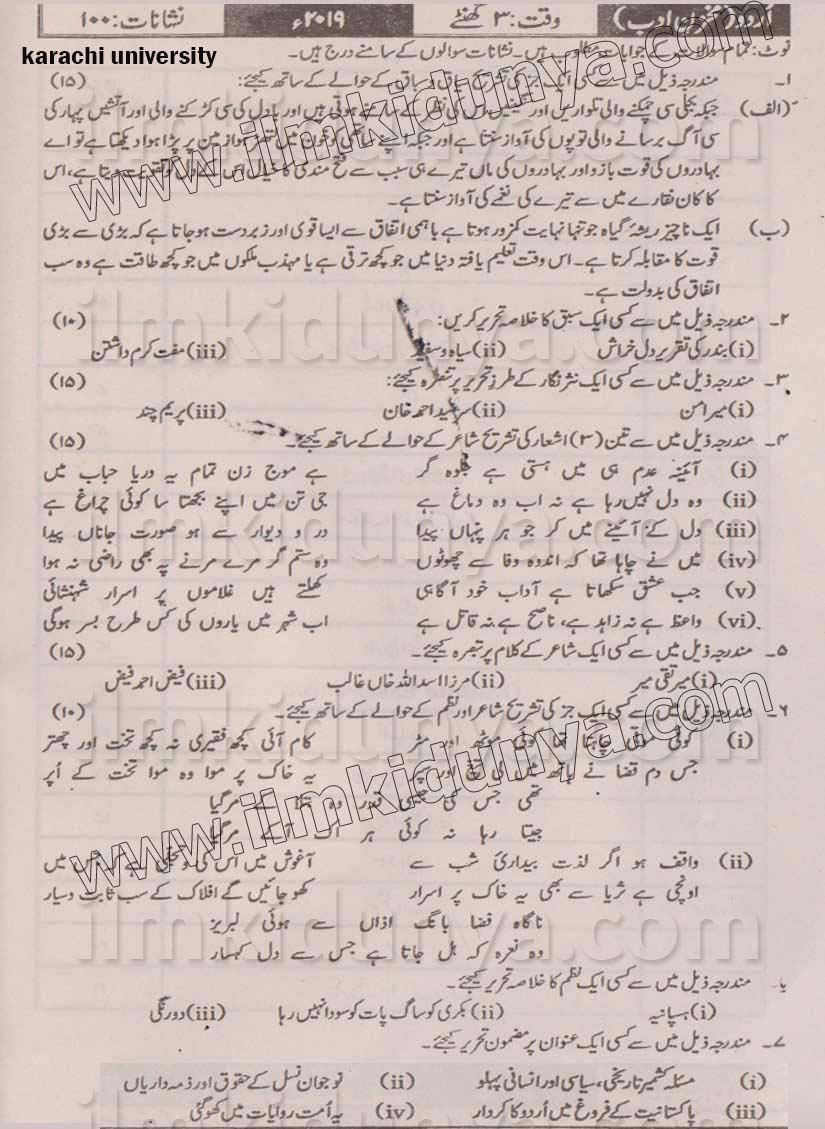 اردو ( ادب)
وقت: ۳ گھنٹے
۲۰۱۹ء
نشانات: ۱۰۰
karachi university
نوٹ: تمام سوالات کے جوابات مطلوب ہیں۔ نشانات سوالوں کے سامنے درج ہیں۔
۱۔ مندرجہ ذیل میں سے کسی ایک جز کی تشریح سیاق و سباق کے حوالے کے ساتھ کیجئے: (۱۵)
(الف) جبکہ بجلی سی چمکنے والی تلواریں اور سنگینیں اس کی نظر کے سامنے ہوتی ہیں اور بادل کی سی کڑکنے والی اور آتشیں پہاڑ کی
سی آگ برسانے والی توپوں کی آواز سنتا ہے اور جبکہ اپنے ساتھی کو خون میں لتھڑا ہوا زمین پر پڑا ہوا دیکھتا ہے تو اے
بہادروں کی قوت بازو اور بہادروں کی ماں تیرے ہی سبب سے فتح مندی کا خیال اس کے دل کو تقویت دیتا ہے، اس
کا کان نقارے میں سے تیرے کی نغمے کی آواز سنتا ہے۔
(ب) ایک ناچیز ریشۂ گیاہ جو تنہا نہایت کمزور ہوتا ہے باہمی اتفاق سے ایسا قوی اور زبردست ہو جاتا ہے کہ بڑی سے بڑی
قوت کا مقابلہ کرتا ہے۔ اس وقت تعلیم یافتہ دنیا میں جو کچھ ترقی ہے یا مہذب ملکوں میں جو کچھ طاقت ہے وہ سب
اتفاق کی بدولت ہے۔
۲۔ مندرجہ ذیل میں سے کسی ایک سبق کا خلاصہ تحریر کریں: (۱۰)
(i) بندر کی تقریر دل خراش (ii) سیاہ و سفید (iii) مفت کرم داشتن
۳۔ مندرجہ ذیل میں سے کسی ایک نثر نگار کے طرز تحریر پر تبصرہ کیجئے: (۱۵)
(i) میر امن (ii) سرسید احمد خان (iii) پریم چند
۴۔ مندرجہ ذیل میں سے تین (۳) اشعار کی تشریح شاعر کے حوالے کے ساتھ کیجئے۔ (۱۵)
(i) آئینۂ عدم ہی میں ہستی ہے جلوہ گر ہے موج زن تمام یہ دریا حباب میں
(ii) وہ دل نہیں رہا ہے نہ اب وہ دماغ ہے جی تن میں اپنے بجھتا سا کوئی چراغ ہے
(iii) دل کے آئینے میں کر جوہر پنہاں پیدا در و دیوار سے ہو صورت جاناں پیدا
(iv) میں نے چاہا تھا کہ اندوہ وفا سے چھوٹوں وہ ستم گر مرے مرنے پہ بھی راضی نہ ہوا
(v) جب عشق سکھاتا ہے آداب خود آگاہی کھلتے ہیں غلاموں پر اسرار شہنشائی
(vi) واعظ ہے نہ زاہد ہے، ناصح ہے نہ قاتل ہے اب شہر میں یاروں کی کس طرح بسر ہوگی
۵۔ مندرجہ ذیل میں سے کسی ایک شاعر کے کلام پر تبصرہ کیجئے۔ (۱۵)
(i) میر تقی میر (ii) مرزا اسد اللہ خاں غالب (iii) فیض احمد فیض
۶۔ مندرجہ ذیل میں سے کسی ایک جز کی تشریح شاعر اور نظم کے حوالے کے ساتھ کیجئے۔ (۱۰)
(i) کوئی چاہتا تھا کوئی اور مٹر کام آئی کچھ فقیری نہ کچھ تخت اور چھتر
جس دم قضا نے ہاتھ میں لی تیغ اور یہ خاک پر موا وہ موا تخت کے اُپر
تھی جس کی جتنی قدر وہ کے مر گیا
جیتا رہا نہ کوئی ہر اک آ کے مر گیا
(ii) واقف ہو اگر لذت بیداریٔ شب سے آغوش میں اس کی وہ تجلی ہے کہ جس میں
اونچی ہے ثریا سے بھی یہ خاک پر اسرار کھو جائیں گے افلاک کے سب ثابت و سیار
ناگاہ فضا بانگ اذاں سے ہوئی لبریز
وہ نعرہ کہ ہل جاتا ہے جس سے دل کہسار
یا۔ مندرجہ ذیل میں سے کسی ایک نظم کا خلاصہ تحریر کیجئے۔
(i) ہسپانیہ (ii) بکری کو ساگ پات کو سودا نہیں رہا (iii) دورنگی
۷۔ مندرجہ ذیل میں سے کسی ایک عنوان پر مضمون تحریر کیجئے۔
(i) مسئلہ کشمیر تاریخی، سیاسی اور انسانی پہلو (ii) نوجوان نسل کے حقوق اور ذمہ داریاں
(iii) پاکستانیت کے فروغ میں اُردو کا کردار (iv) یہ اُمت روایات میں کھو گئی
www.ilmkidunya.com
www.ilmkidunya.com
ilmkidunya.com
ilmkidunya.com
ilmkidunya.com
ilmkidunya.com
ilmkidunya.com